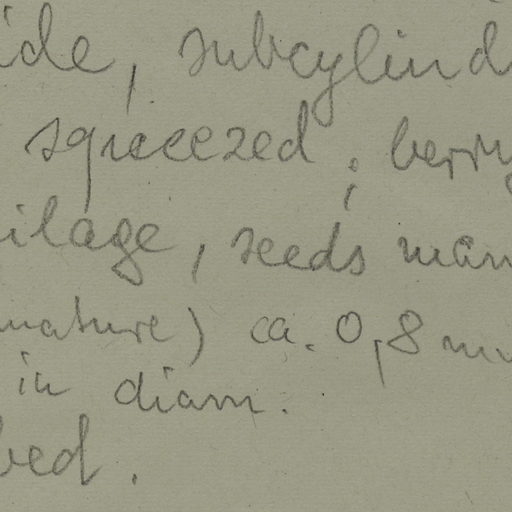 ide, subcylind
squeezed; berry
ilage, seeds man
mature) ca. 0,8 mm
in diam.
bed.